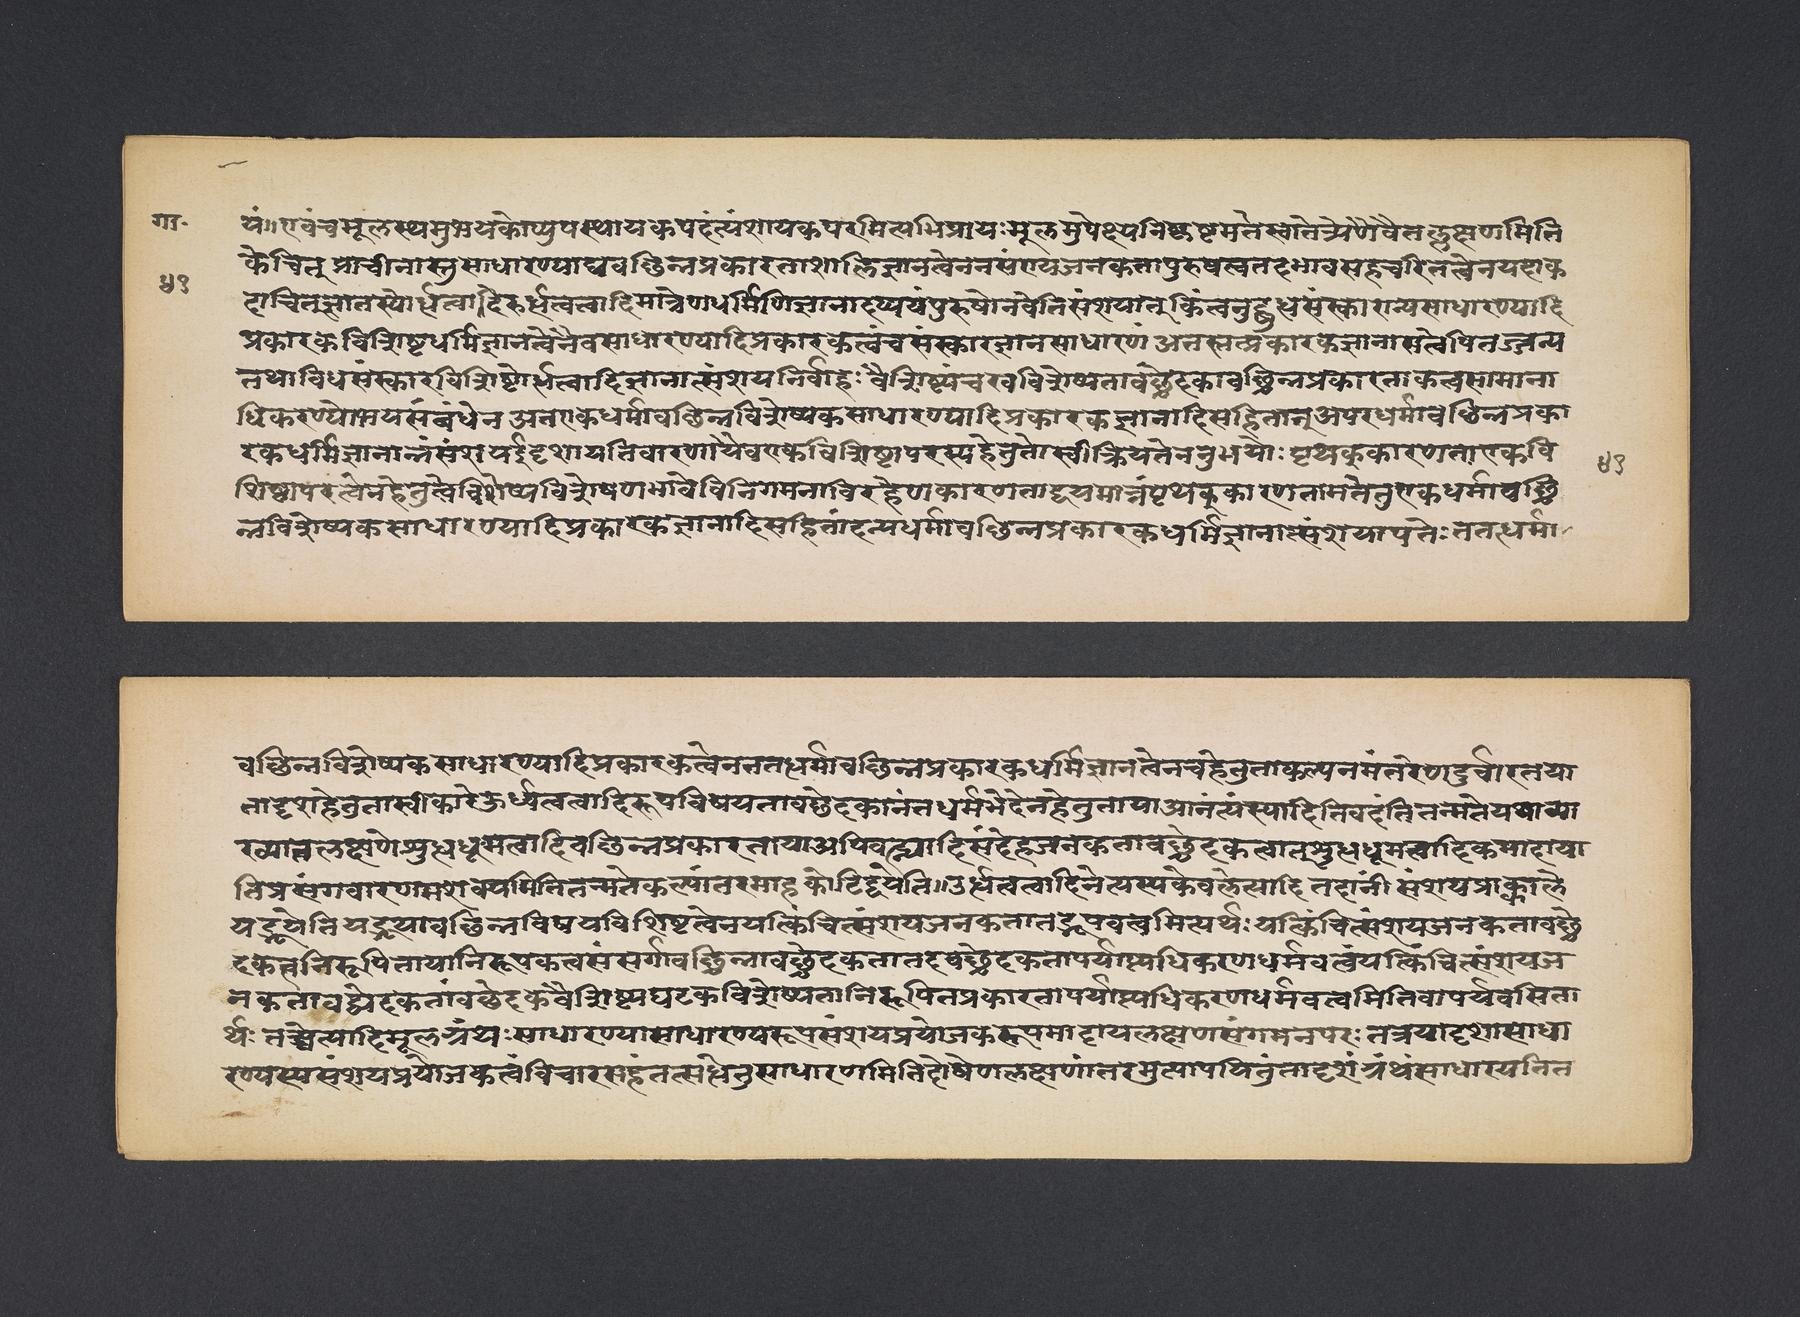 गा॰
४१
यं॥एवंचमूलस्थमुभयकोप्युपस्थायकपदंत्यंशायकपरमित्यभिप्रायःमूलमुपेक्ष्यनिष्कृष्टमतेस्वातंत्र्येणैवैतल्लक्षणमिति
केचित् प्राचीनास्तुसाधारण्याद्यवछिन्नप्रकारताशालिज्ञानत्वेननसंशयजनकतापुरुषत्वतदभावसहचरितत्वेनयदाक
दाचित्ज्ञातस्योर्धत्वादिरुर्धत्वत्वादिमात्रेणधर्मिणिज्ञानादप्ययंपुरुषोनवेतिसंशयात् किंत्वनुद्बुधसंस्कारान्यसाधारण्यादि
प्रकारकविशिष्टधर्मिज्ञानत्वेनैवसाधारण्यादिप्रकारकत्वंचसंस्कारज्ञानसाधारणं अतस्तत्प्रकारकज्ञानासत्वेपितज्जन्य
तथाविधसंस्कारविशिष्टोर्धत्वादिज्ञानात्संशयनिर्वाहः वैशिष्ट्यंचस्वविशेष्यतावछेदकावछिन्नप्रकारताकत्वसामाना
धिकरण्योभयसंबंधेन अतएकधर्मावछिन्नविशेष्यकसाधारण्यादिप्रकारकज्ञानादिसहितात् अपरधर्मावछिन्नप्रका
रकधर्मिज्ञानान्नसंशयर्इदृशायतिवारणायैवएकविशिष्टापरस्यहेतुतास्वीक्रियतेनतुभयोः पृथक्कारणताएकवि
शिष्टापरत्वेनहेतुत्वेविशेष्यविशेषणभावेविनिगमनाविरहेणकारणताद्वयमात्रंपृथक्कारणतामतेतुएकधर्मावछि
न्नविशेष्यकसाधारण्यादिप्रकारकज्ञानादिसहितादन्यधर्मावछिन्नप्रकारकधर्मिज्ञानात्संशयापत्तेः तत्तत्धर्मा
४१
वछिन्नविशेष्यकसाधारण्यादिप्रकारकत्वेनततधर्मावछिन्नप्रकारकधर्मिज्ञानत्वेनचहेतुताकल्पनमंतरेणदुर्वारतया
तादृशहेतुतास्वीकारेऊर्ध्वत्वत्वादिरूपविषयतावछेदकानंतधर्मभेदेनहेतुताया आनंत्यंस्यादितिवदंतितन्मतेयथाव्या
ख्यातलक्षणेशुधधूमत्वादिवछिन्नप्रकारतायाअपिवह्न्यादिसंदेहजनकतावछेदकत्वात्शुधधूमत्वादिकमादाया
तिप्रसंगवारणमशक्यमितितन्मतेकल्पांतरमाह कोटिद्वयेति॥उर्धत्वत्वादिनेत्यस्यकेवलेत्यादि तदानीं संशयप्राक्काले
यद्रूपेतियद्रूपावछिन्नविषयविशिष्टत्वेनयत्किंचित्संशयजनकतातद्रूपवत्वमित्यर्थः यत्किंचित्संशयजनकतावछे
दकत्वनिरूपितायानिरूपकत्वसंसर्गावछिन्नावछेदकतातदवछेदकतापर्याप्त्यधिकरणधर्मवत्वंयत्किंचित्संशयज
नकतावछेदकतावछेदकवैशिष्ट्यघटकविशेष्यतानिरूपितप्रकारतापर्याप्त्यधिकरणधर्मवत्वमितिवापर्यवसिता
र्थः तच्चेत्यादिमूलग्रंथःसाधारण्यासाधारण्यरूपसंशयप्रयोजकरूपमादायलक्षणसंगमनपरः तत्रयादृशासाधा
रण्यस्यसंशयप्रयोजकत्वंविचारसहंतत्सद्धेतुसाधारणमितिदोषेणलक्षणांतरमुत्थापयितुंतादृशंग्रंथंसाधारयतित